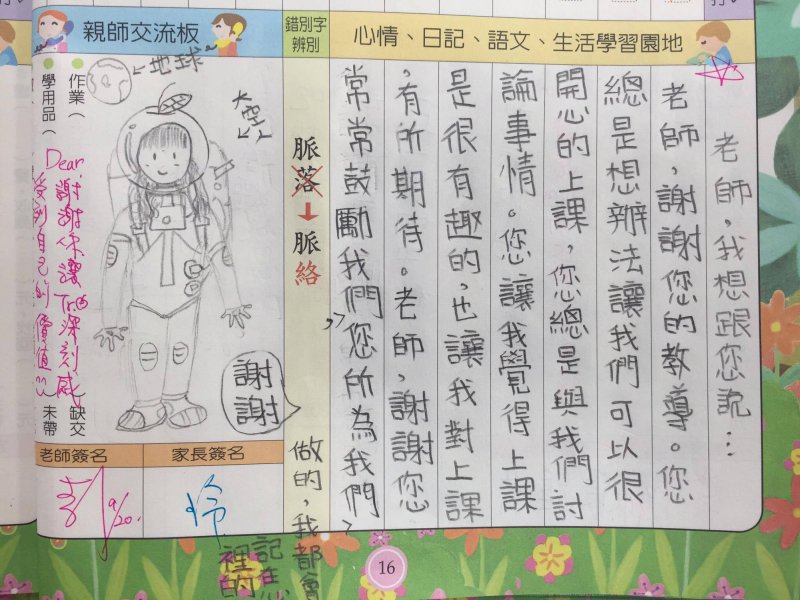 親師交流板
錯別字
辨別
心情、日記、語文、生活學習園地
老師,我想跟您說:…
老師,謝謝您的教導。您
總是想辦法讓我們可以很
開心的上課,您總是與我們討
論事情。您讓我覺得上課
是很有趣的,也讓我對上課
,有所期待。老師,謝謝您
常常鼓勵我們,您所為我們
做的,我都會
記在心
裡的
脈落
脈絡
地球
太空
謝謝
作業(
缺交
學用品(
未帶
Dear. 謝謝你讓
深刻感
受到自己的價值
老師簽名
家長簽名
李
9/20.
16